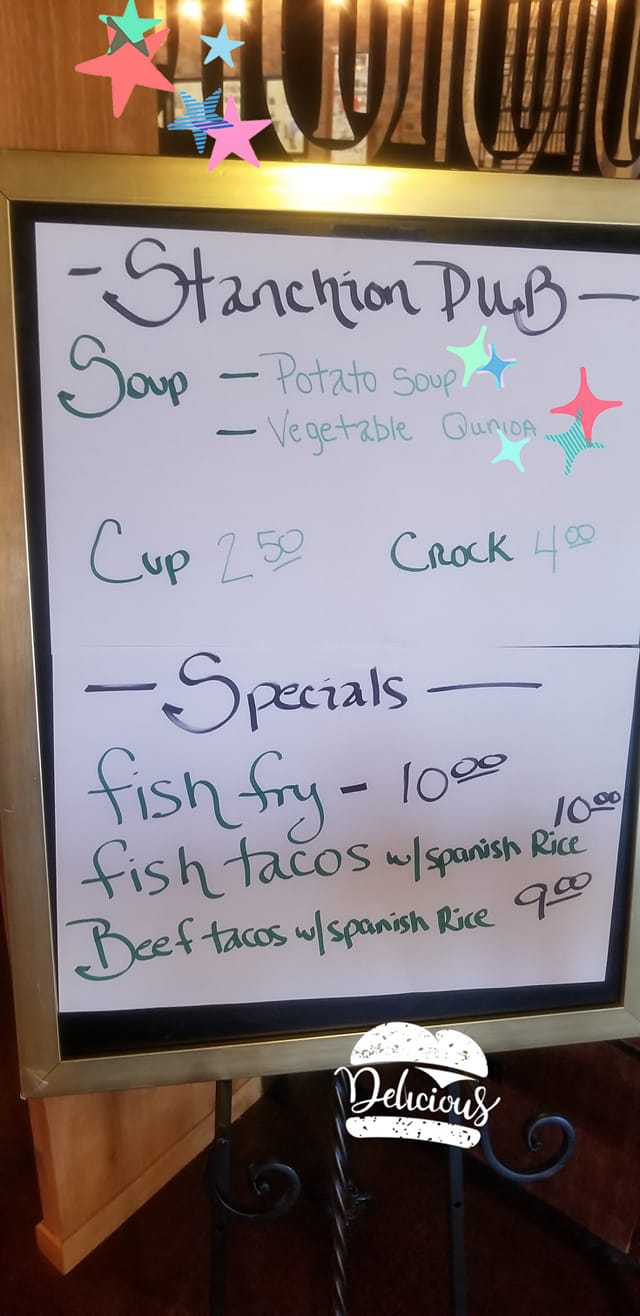 - Stanchion PUB -
Soup - Potato Soup
- Vegetable Qunioa
Cup 2 50 Crock 4 00
- Specials -
fish fry - 10 00
10 00
fish tacos w/spanish Rice
Beef tacos w/spanish Rice 9 00
Delicious